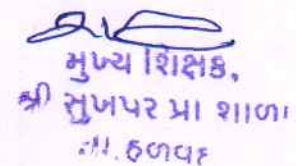 મુખ્ય શિક્ષક,
શ્રી સુખપર પ્રા શાળા
તા. હળવદ